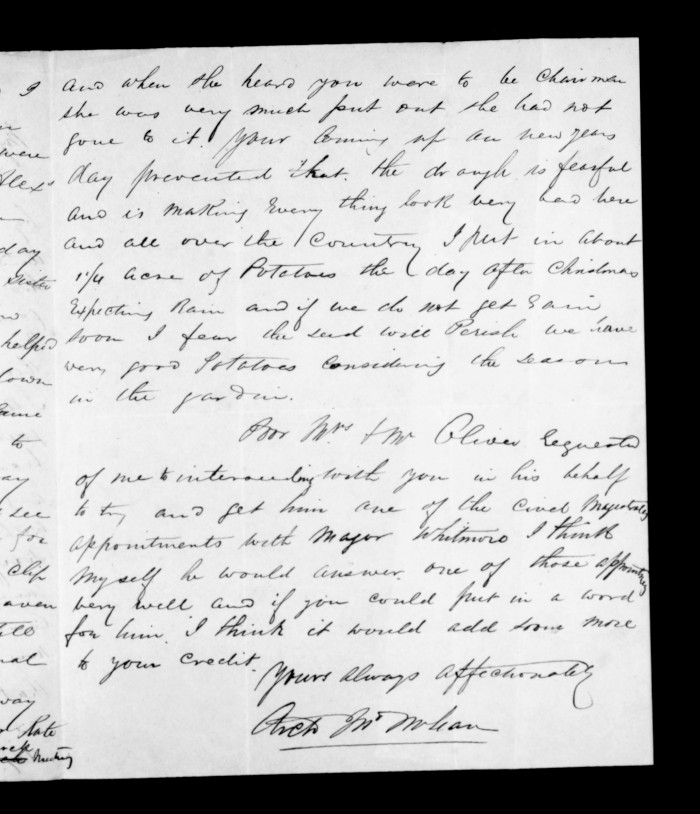 and when she heard you were to be Chairman
she was very much put out she had not
gone to it. Your coming up on new years
day prevented that. The drough is fearful
and is making Every thing look very bad here
and all over the Country I put in about
1 1/4 acre of Potatoes the day after Christmas
Expecting Rain and if we do not get Rain
soon I fear the seed will Perish we have
very good Potatoes considering the season
in the garden.
Poor Mrs & Mr Oliver requested
of me to interceeding with you in his behalf
to try and get him one of the civel Magistrates
appointments with Magor Whitmore I think
myself he would answer one of those appointments
very well and if you could put in a word
for him. I think it would add some more
to your credit.
Yours always affectionately
Arch Mc
I
were
Alexr
day
Sister
helped
down
to
see
for
clip
Kate
Meeting